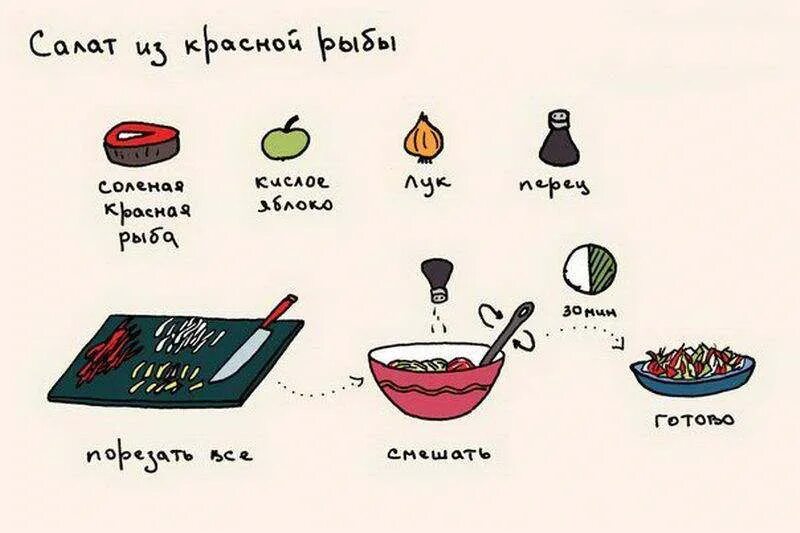 Салат из красной рыбы
соленая
красная
рыба
кислое
яблоко
лук
перец
30 мин
порезать все
смешать
готово